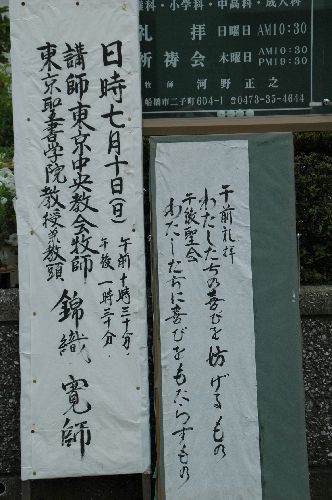 科・小学科・中高科・成人科
礼拝 日曜日 AM10:30
祈祷会 木曜日 AM10:30 PM 7:30
牧師 河野正之
船橋市二子町604-1 ☎0473-33-4644
日時七月十日(日)
午前十時三十分.
午後一時三十分.
講師 東京中央教会牧師
東京聖書学院教授兼教頭
錦織 寛師
午前礼拝
わたしたちの喜びを妨げるもの
午後聖会
わたしたちに喜びをもたらすもの